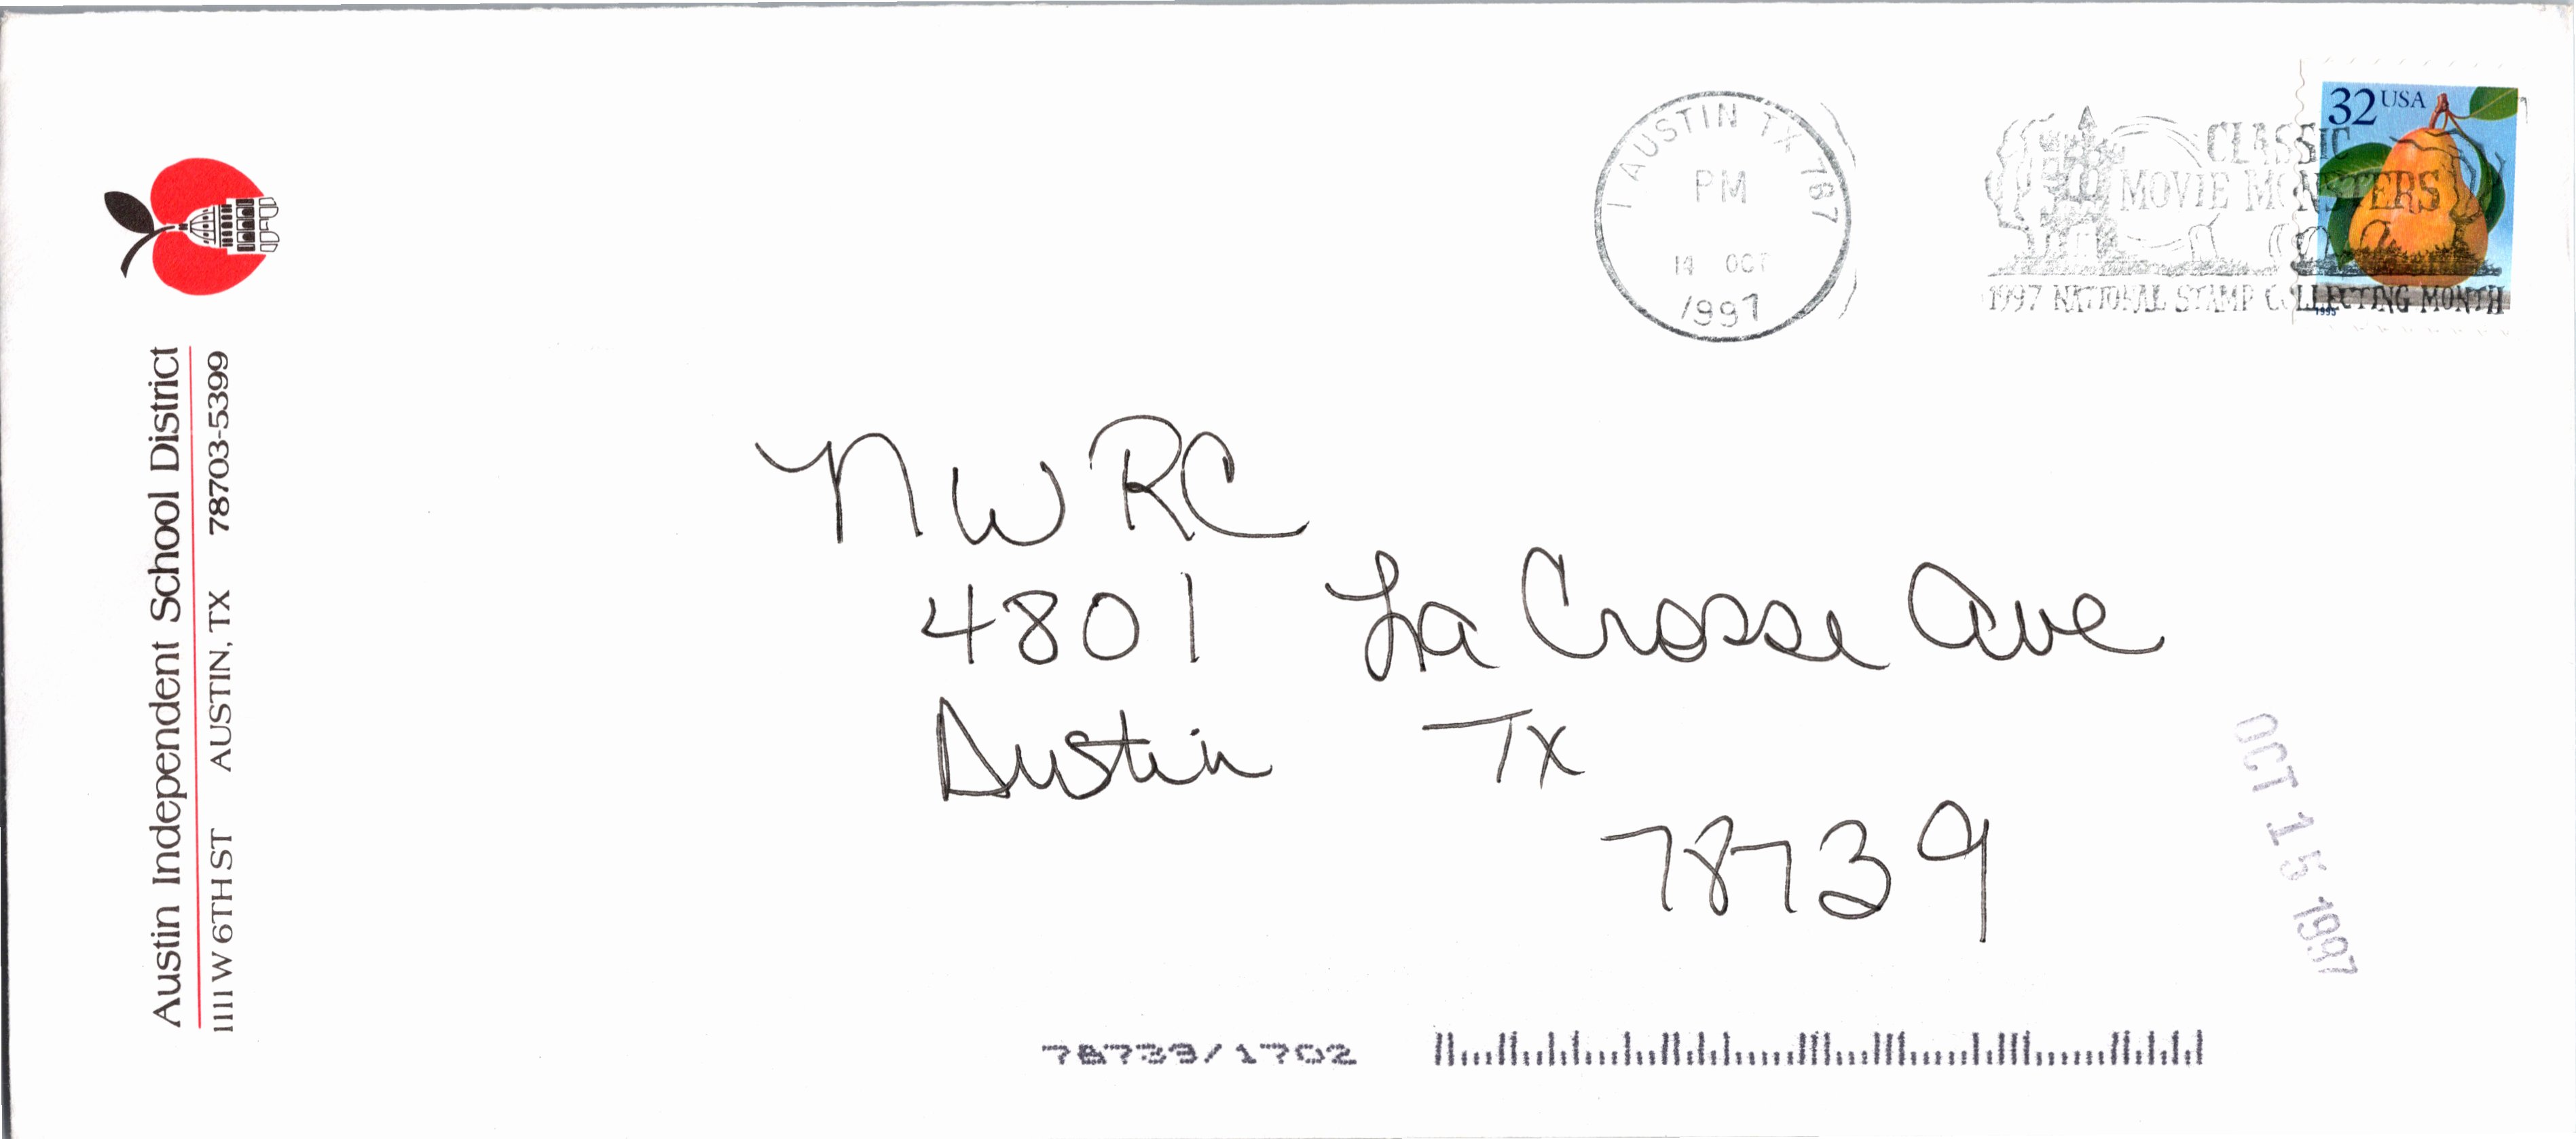 Austin Independent School District
1111 W 6TH ST AUSTIN, TX 78703-5399
1 AUSTIN TX 787
PM
14 OCT
1997
CLASSIC
MOVIE MONSTERS
1997 NATIONAL STAMP COLLECTING MONTH
32 USA
1995
NWRC
4801 La Crosse Ave
Austin TX
78739
OCT 15 1997
78739/1702